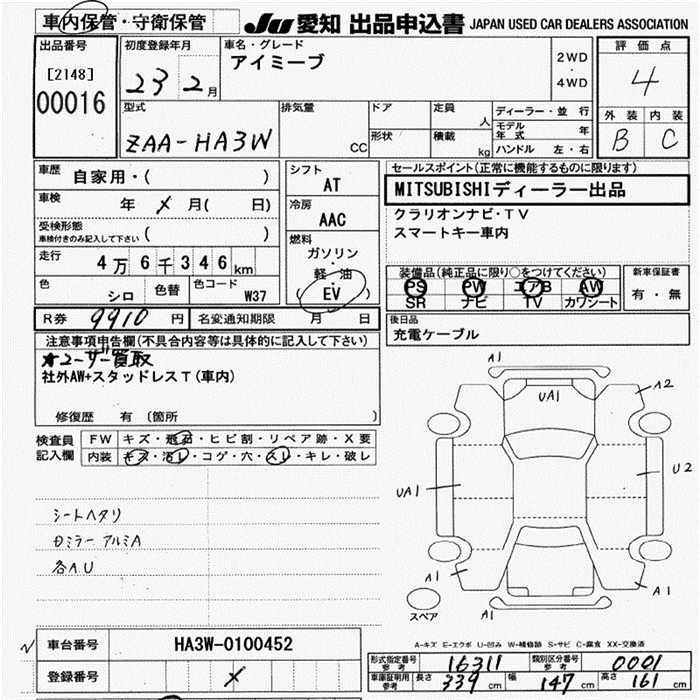 車内保管・守衛保管 JU 愛知 出品申込書 JAPAN USED CAR DEALERS ASSOCIATION
出品番号
[2148]
00016
初度登録年月
23 2月
車名・グレード
アイミーブ
2WD
・
4WD
評価点
4
外装 内装
B C
型式
ZAA-HA3W
排気量
CC
ドア
形状
定員
人
積載
kg
ディーラー・並行
モデル年式 年
ハンドル 左・右
車歴
自家用・( )
車検 年 月( 日)
受検形態
車検付きのみ記入して下さい ( )
走行 4万6千346km
色 シロ 色替 色コード W37
シフト
AT
冷房
AAC
燃料
ガソリン
・
軽油
(EV)
セールスポイント(正常に機能するものに限ります)
MITSUBISHIディーラー出品
クラリオンナビ・TV
スマートキー車内
装備品(純正品に限り○をつけてください)
PS PW エアB AW
SR ナビ TV カワシート
新車保証書
有・無
後日品
充電ケーブル
R券 9910 円 名変通知期限 月 日
注意事項申告欄(不具合内容等は具体的に記入して下さい)
★ユーザー買取
社外AW+スタッドレスT(車内)
修復歴 有 (箇所 )
検査員
記入欄
FW キズ・飛石・ヒビ割・リペア跡・X要
内装 キズ・汚レ・コゲ・穴・スレ・キレ・破レ
シートヘタリ
各A.U
A1
UA1
A2
U2
UA1
A1
A1
A1
スペア
A-キズ E-エクボ U-凹み W-補修跡 S-サビ C-腐食 XX-交換済
車台番号 HA3W-0100452
登録番号
形式指定番号
参考
16311
類別区分番号
参考
0001
車庫証明用
参考
長さ 339 cm 幅 147 cm 高さ 161 cm